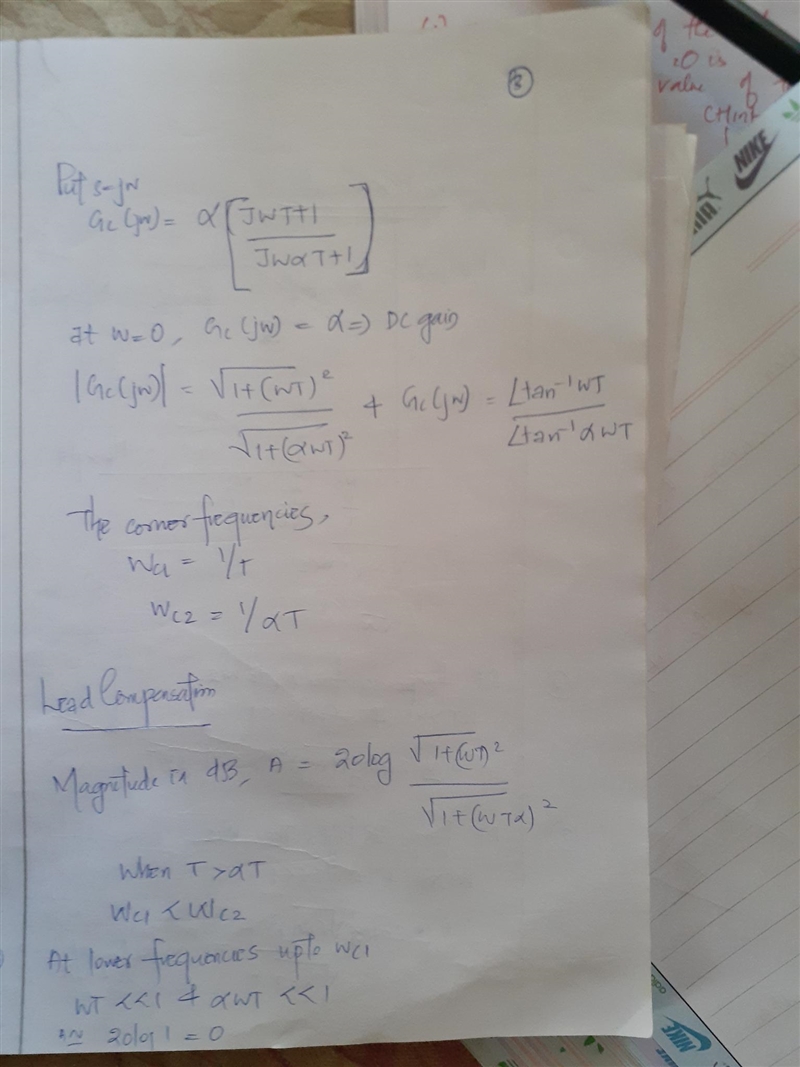 3
Put s=jw
Gc(jw) = α[JWT+1 / JWαT+1]
at w=0, Gc(jw) = α => DC gain
|Gc(jw)| = √1+(WT)² / √1+(αWT)² & Gc(jw) = ∠tan⁻¹WT / ∠tan⁻¹αWT
The corner frequencies,
Wc1 = 1/T
Wc2 = 1/αT
Lead Compensation
Magnitude in dB, A = 20log √1+(WT)² / √1+(WTα)²
When T>αT
Wc1 < Wc2
At lower frequencies upto Wc1
WT <<1 & αWT <<1
20log 1 = 0
of the
is
value of
NIKE
NIKE